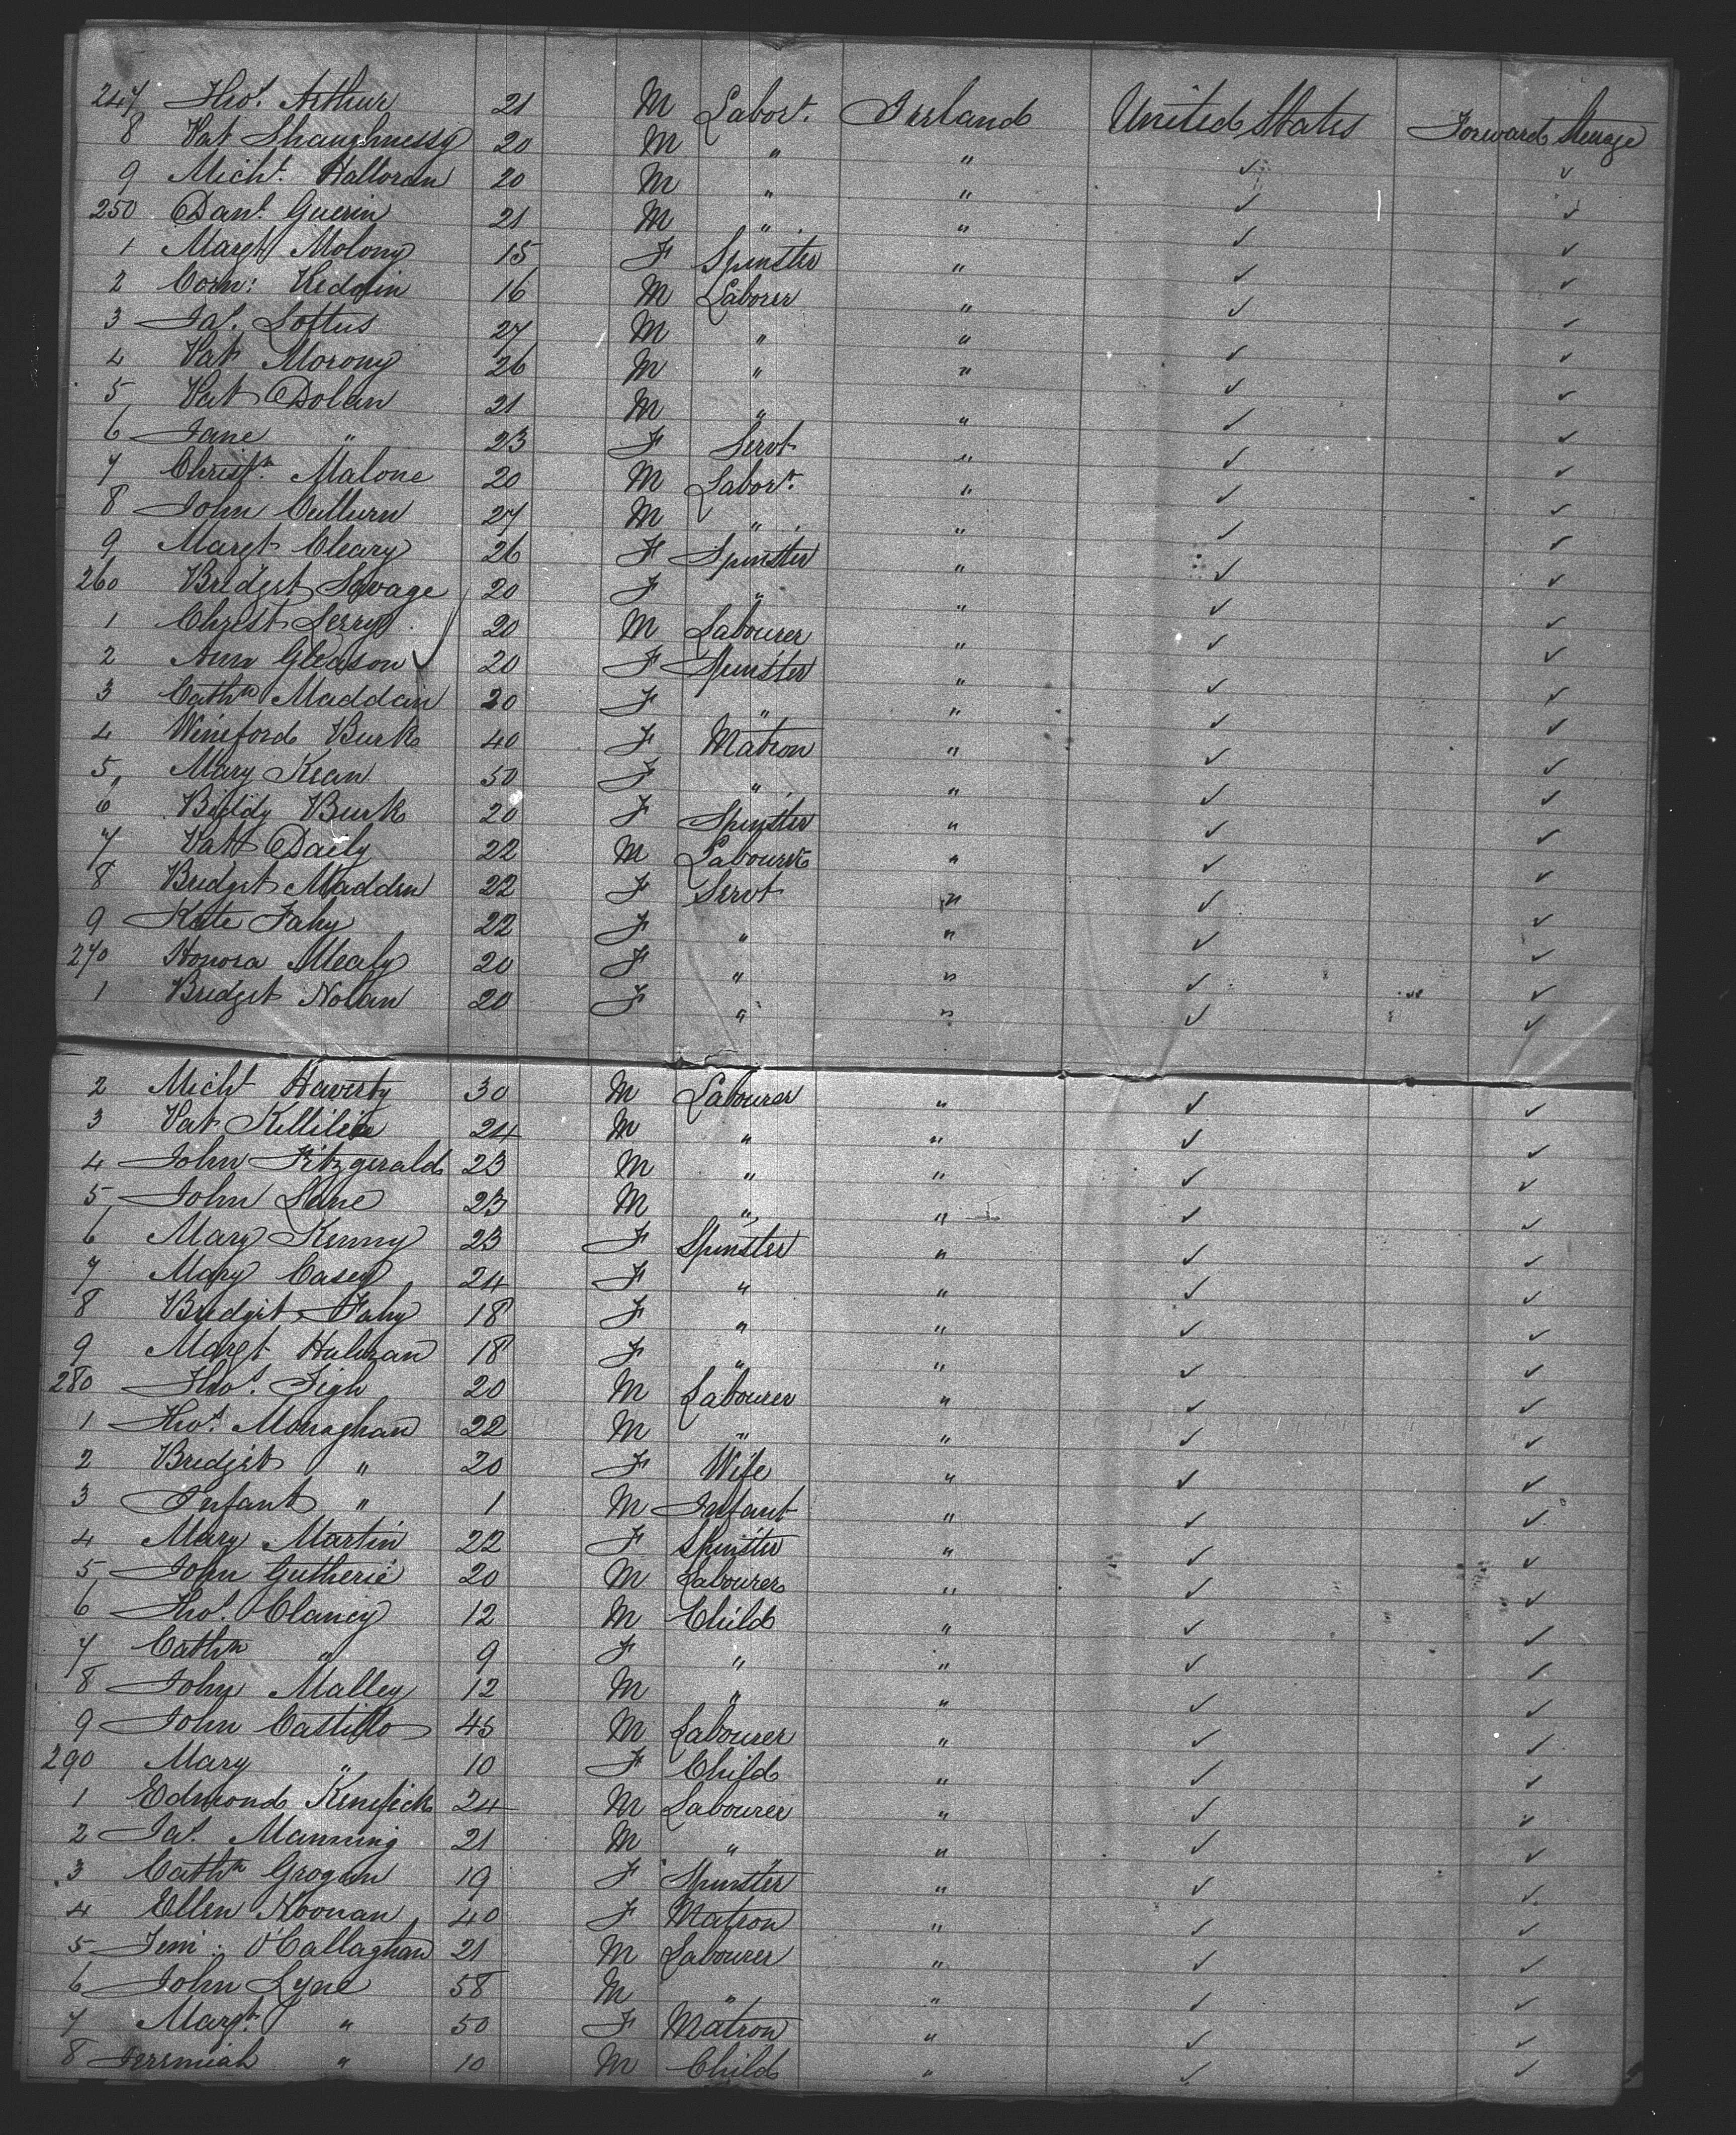 247 Thos. Arthur 21 M Labor. Ireland United States Forward Steerage
8 Pat Shaughnessy 20 M " " ✓ ✓
9 Michl. Halloran 20 M " " ✓ ✓
250 Danl. Guerin 21 M " " ✓ ✓
1 Margt Molony 15 F Spinster " ✓ ✓
2 Corn: Heddin 16 M Laborer " ✓ ✓
3 Jas. Loftus 27 M " " ✓ ✓
4 Pat Morony 26 M " " ✓ ✓
5 Pat Dolan 21 M " " ✓ ✓
6 Jane " 23 F Servt " ✓ ✓
7 Christr. Malone 20 M Labor. " ✓ ✓
8 John Culturn 27 M " " ✓ ✓
9 Margt Cleary 26 F Spinster " ✓ ✓
260 Bridget Savage 20 F " " ✓ ✓
1 Christ Serry 20 M Labourer " ✓ ✓
2 Ann Gleason ✓ 20 F Spinster " ✓ ✓
3 Cathn Maddan 20 F " " ✓ ✓
4 Winiford Burk 40 F Matron " ✓ ✓
5 Mary Kean 50 F " " ✓ ✓
6 Biddy Burk 20 F Spinster " ✓ ✓
7 Patt Daily 22 M Labourer " ✓ ✓
8 Bridget Madden 22 F Servt " ✓ ✓
9 Kate Fahy 22 F " " ✓ ✓
270 Honora Mealy 20 F " " ✓ ✓
1 Bridget Nolan 20 F " " ✓ ✓
2 Michl Haverty 30 M Labourer " ✓ ✓
3 Pat Killilea 24 M " " ✓ ✓
4 John Fitzgerald 23 M " " ✓ ✓
5 John Lane 23 M " " ✓ ✓
6 Mary Kenny 23 F Spinster " ✓ ✓
7 Mary Casey 24 F " " ✓ ✓
8 Bridget Fahy 18 F " " ✓ ✓
9 Margt Huleran 18 F " " ✓ ✓
280 Thos. Figh 20 M Labourer " ✓ ✓
1 Thos. Monaghan 22 M " " ✓ ✓
2 Bridget " 20 F Wife " ✓ ✓
3 Infant " 1 M Infant " ✓ ✓
4 Mary Martin 22 F Spinster " ✓ ✓
5 John Gutherie 20 M Labourer " ✓ ✓
6 Thos. Clancy 12 M Child " ✓ ✓
7 Cathn " 9 F " " ✓ ✓
8 John Malley 12 M " " ✓ ✓
9 John Castillo 45 M Labourer " ✓ ✓
290 Mary " 10 F Child " ✓ ✓
1 Edmond Kenefick 24 M Labourer " ✓ ✓
2 Jas. Manning 21 M " " ✓ ✓
3 Cathn Grogan 19 F Spinster " ✓ ✓
4 Ellen Noonan 40 F Matron " ✓ ✓
5 Jem: O'Callaghan 21 M Labourer " ✓ ✓
6 John Lyne 58 M " " ✓ ✓
7 Margt. " 50 F Matron " ✓ ✓
8 Jeremiah " 10 M Child " ✓ ✓